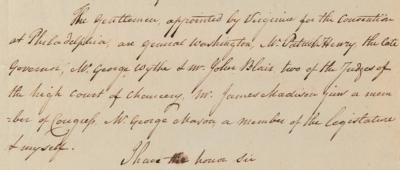 The Gentlemen, appointed by Virginia for the Convention
at Philadelphia, are general Washington, Mr. Patrick Henry, the late
Governor, Mr. George Wythe & Mr. John Blair, two of the Judges of
the high court of Chancery, Mr. James Madison Junr a mem
-ber of Congress, Mr. George Mason, a member of the legislature
& myself.
I have the honor sir